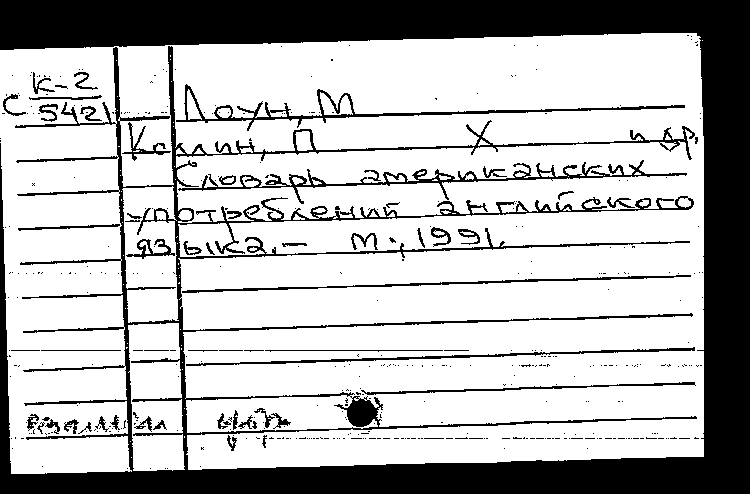 К-2
С 5421
Лоун, М
Коллин, П Х и др.
Словарь американских
употреблений английского
языка. – М., 1991.